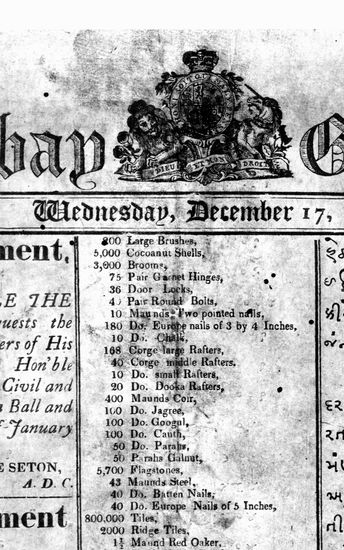 bay G
DIEU ET MON DROIT
Wednesday, December 17,
ment,
E THE
uests the
ers of His
Hon'ble
Civil and
a Ball and
f January
E SETON,
A. D. C.
ment
200 Large Brushes,
5,000 Cocoanut Shells,
3,000 Brooms,
75 Pair Garnet Hinges,
36 Door Locks,
Pair Round Bolts,
10 Maunds Two pointed nails,
180 Do. Europe nails of 3 by 4 Inches,
10 Do. Chalk,
168 Corge large Rafters,
40 Corge middle Rafters,
10 Do. small Rafters,
20 Do. Dooka Rafters,
400 Maunds Coir,
100 Do. Jagree,
100 Do. Googul,
100 Do. Cauth,
50 Do. Parahs,
50 Parahs Galnut,
5,700 Flagstones,
43 Maunds Steel,
40 Do. Batten Nails,
40 Do. Europe Nails of 5 Inches,
800,000 Tiles,
2000 Ridge Tiles,
1½ Maund Red Oaker.